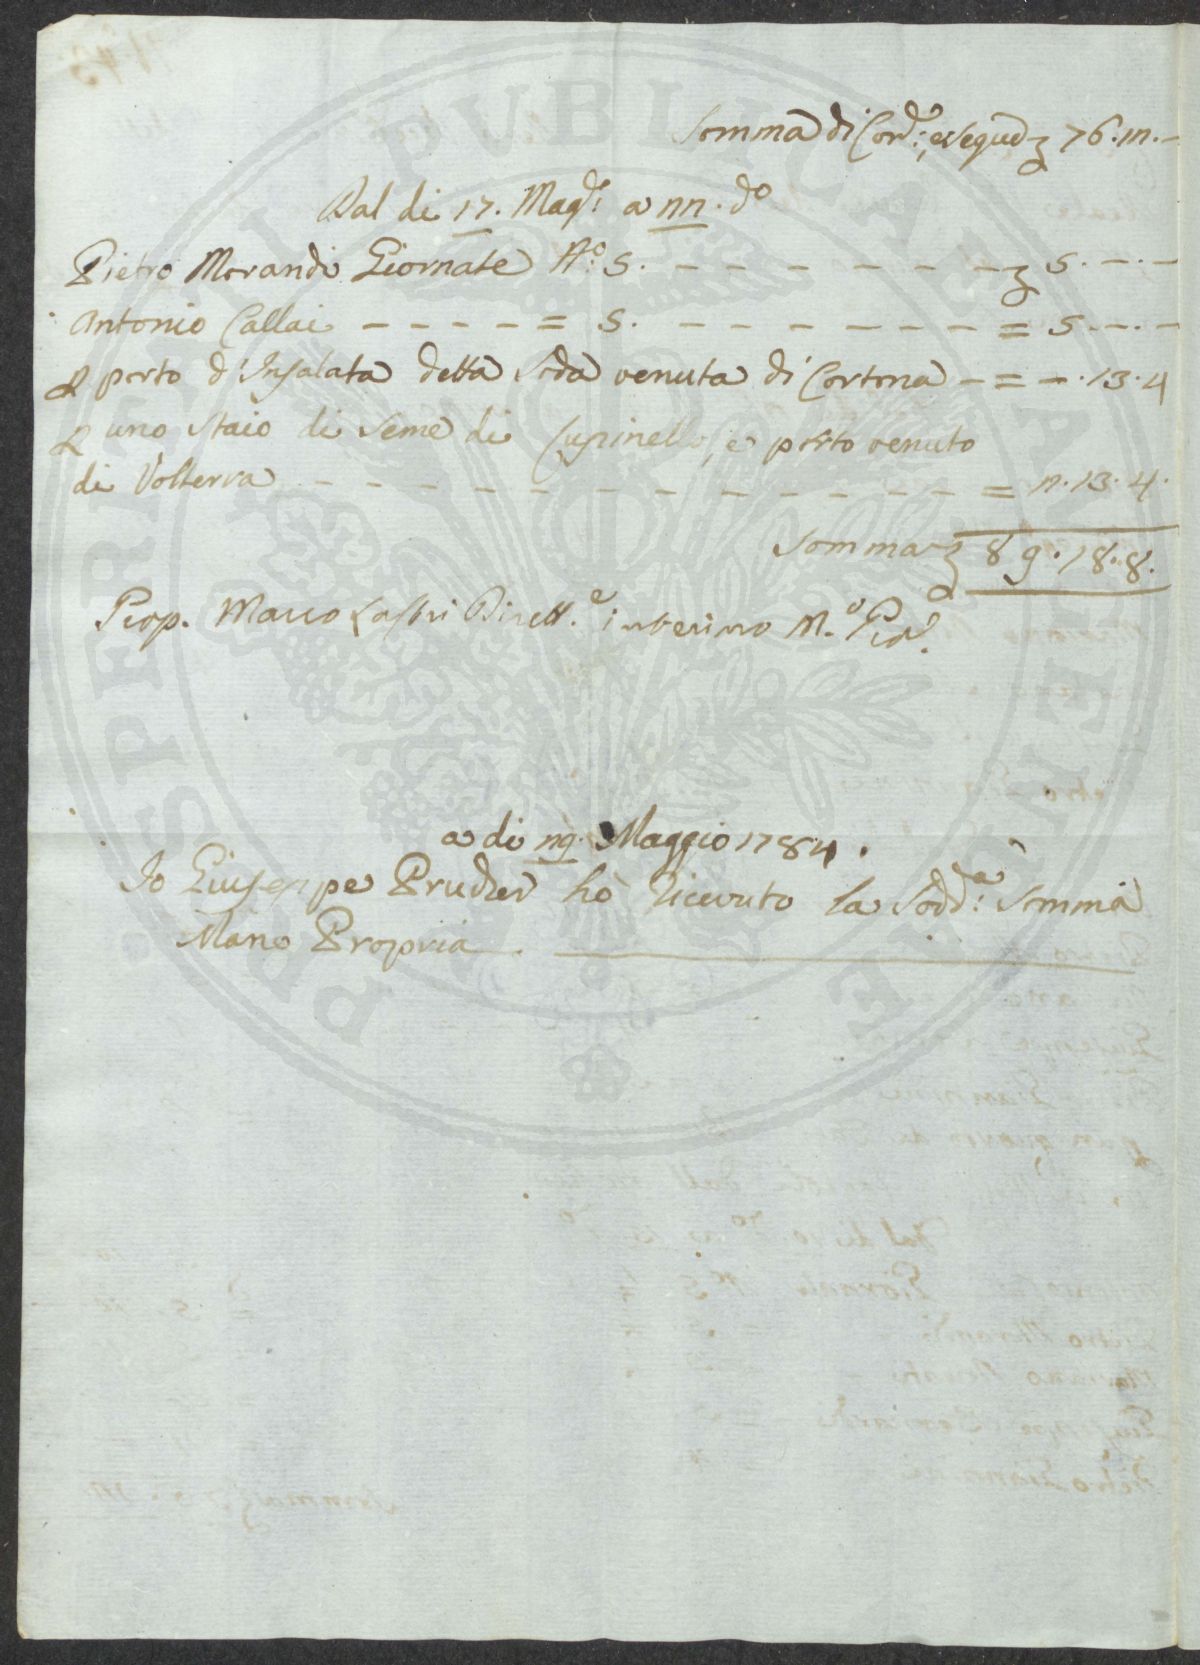 PROSPERITATI PUBLICAE AUGENDAE
Somma di Cont.ro, e segue £ 76.12.-
Dal di 17. Mag.o a 22. d.o
Pietro Morandi Giornate N.o 5. - - - - - - - £ 5.-.-
Antonio Callai - - - - = 5. - - - - - - = 5.-.-
P porto d'Insalata detta Soda venuta di Cortona - = -.13.4
P uno Staio di Seme di Lupinello, e porto venuto
di Volterra - - - - - - - - - - - - = 2.13.4.
Somma £ 89.18.8.
Prop. Marco Lastri Dirett.e interino M.o Pp.a
a di 29. Maggio 1784.
Io Giuseppe Prucher hò Ricevuto la Sodd.a Somma
Mano Propria